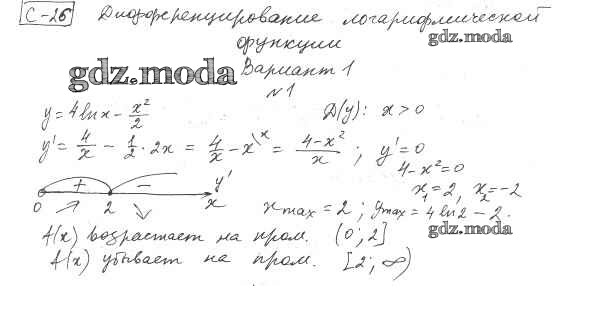 С-26 Дифференцирование логарифмической
функции gdz.moda
gdz.moda Вариант 1
№1
y = 4 ln x - x²/2 D(y): x > 0
y' = 4/x - 1/2 · 2x = 4/x - x\x = 4-x²/x ; y' = 0
4 - x² = 0
+ - y' x₁ = 2, x₂ = -2
0 2 x x max = 2 ; y max = 4 ln 2 - 2.
f(x) возрастает на пром. (0; 2] gdz.moda
f(x) убывает на пром. [2; ∞)